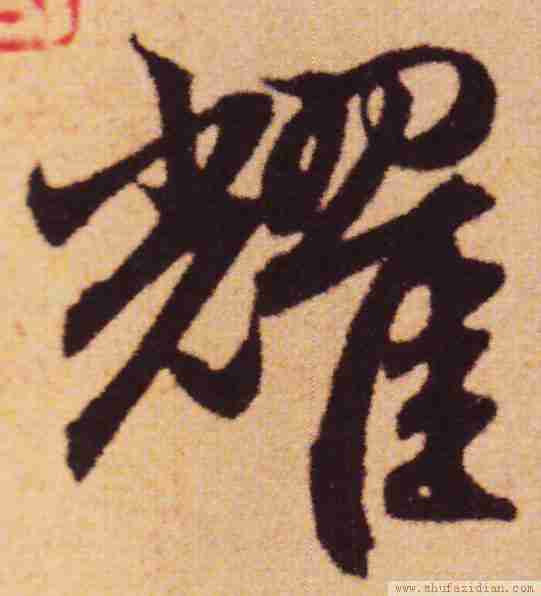 耀
www.shufazidian.com